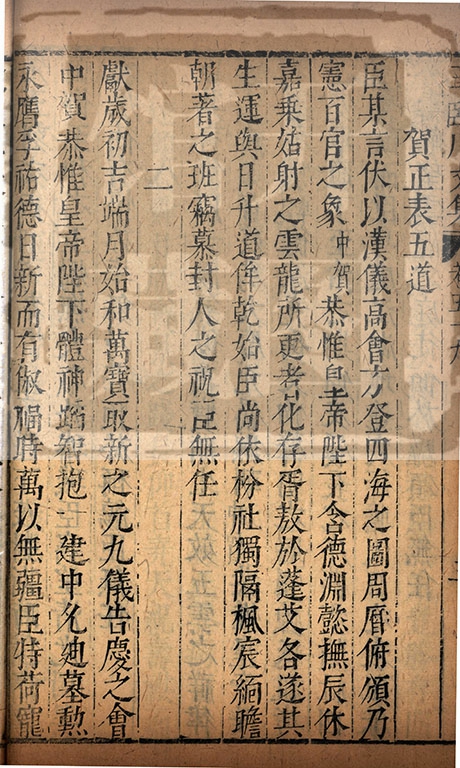 賀正表五道
臣某言伏以漢儀高會方登四海之圖周曆俯頒乃
憲百官之象中賀恭惟皇帝陛下含德淵懿撫辰休
嘉乘姑射之雲龍所更者化存胥敖於蓬艾各遂其
生運與日升道侔乾始臣尚依枌社獨隔楓宸緬瞻
朝著之班竊慕封人之祝臣無任
二
獻歲初吉端月始和萬寶取新之元九儀告慶之會
中賀恭惟皇帝陛下體神端智抱一建中允迪墓勲
永膺孚祐德日新而有俶膓時萬以無疆臣特荷寵